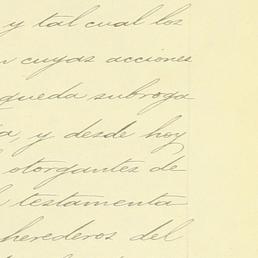 y tal cual los
cuyas acciones
queda subroga
y desde hoy
otorgantes de
testamenta
herederos del